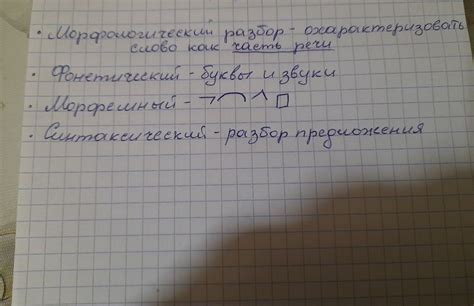 • Морфологический разбор - охарактеризовать
слово как часть речи
• Фонетический - буквы и звуки
• Морфемный - ¬ ⌒ ^ □
• Синтаксический - разбор предложения